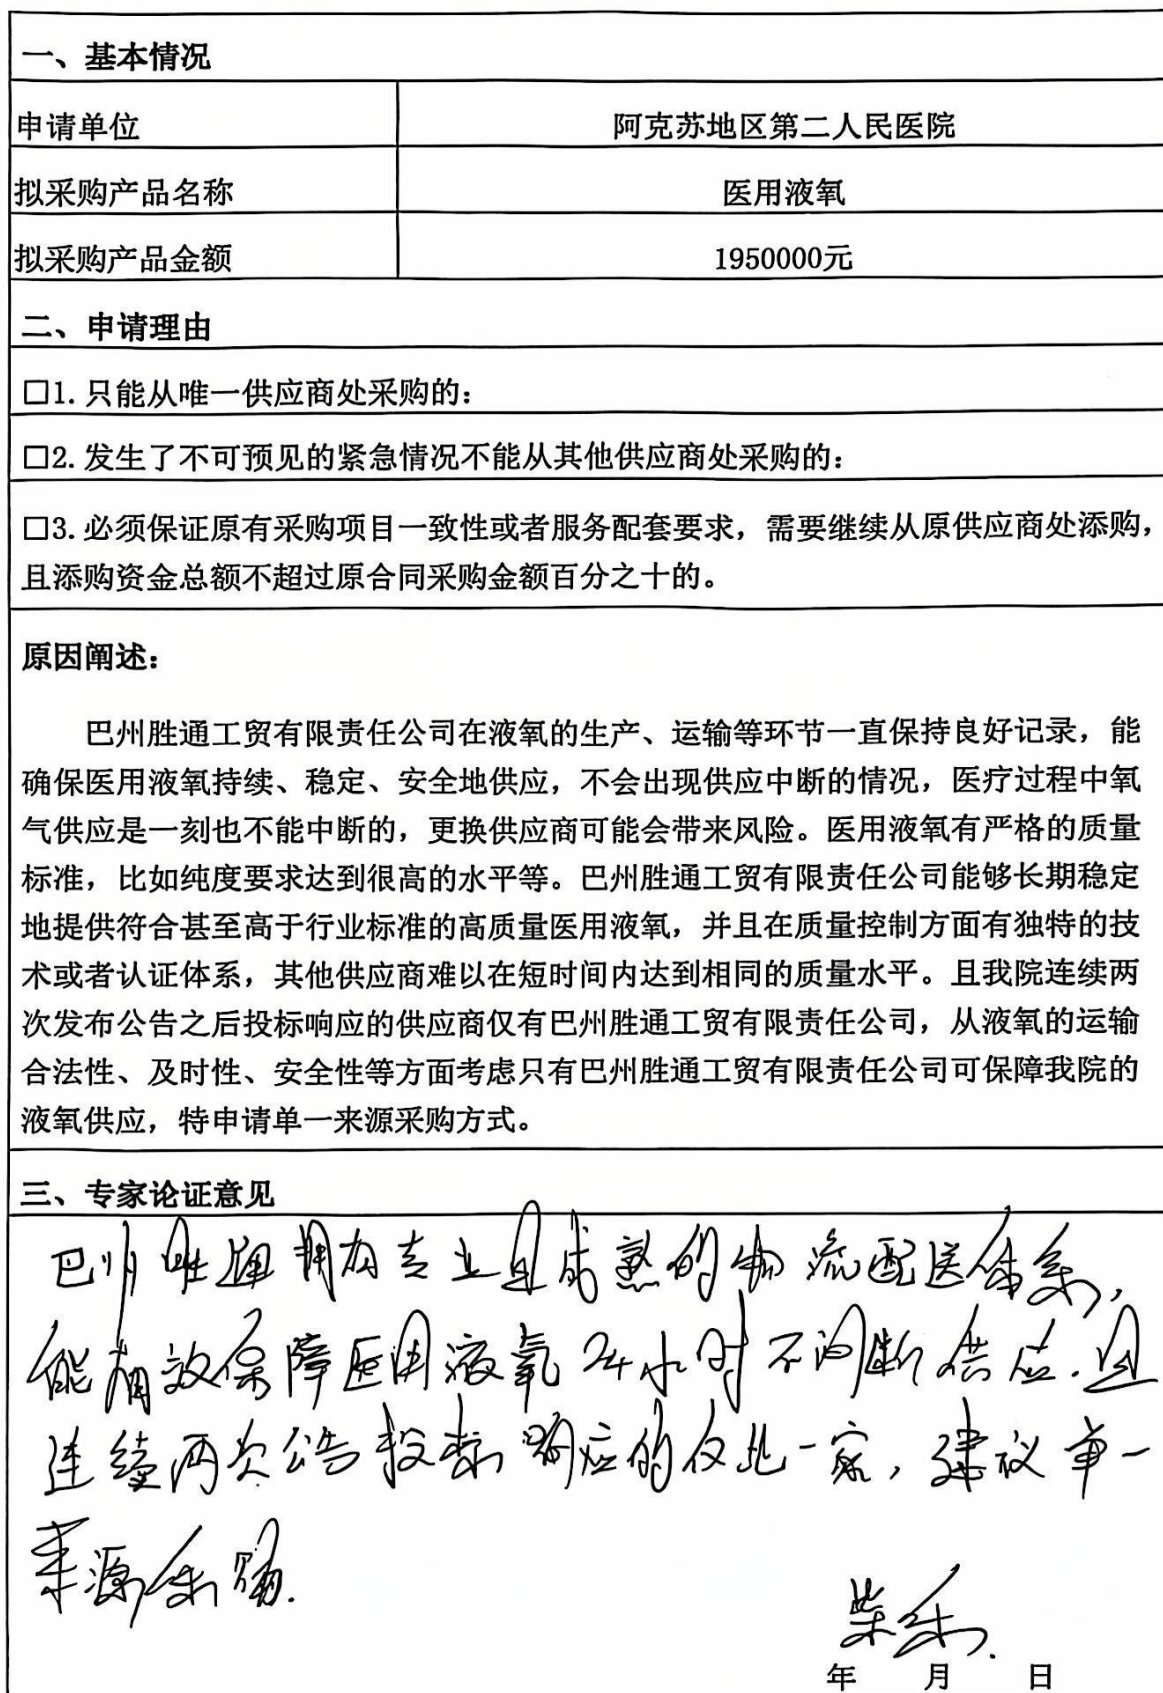 一、基本情况
申请单位 阿克苏地区第二人民医院
拟采购产品名称 医用液氧
拟采购产品金额 1950000元
二、申请理由
□1.只能从唯一供应商处采购的：
□2.发生了不可预见的紧急情况不能从其他供应商处采购的：
□3.必须保证原有采购项目一致性或者服务配套要求，需要继续从原供应商处添购，
且添购资金总额不超过原合同采购金额百分之十的。
原因阐述：
巴州胜通工贸有限责任公司在液氧的生产、运输等环节一直保持良好记录，能
确保医用液氧持续、稳定、安全地供应，不会出现供应中断的情况，医疗过程中氧
气供应是一刻也不能中断的，更换供应商可能会带来风险。医用液氧有严格的质量
标准，比如纯度要求达到很高的水平等。巴州胜通工贸有限责任公司能够长期稳定
地提供符合甚至高于行业标准的高质量医用液氧，并且在质量控制方面有独特的技
术或者认证体系，其他供应商难以在短时间内达到相同的质量水平。且我院连续两
次发布公告之后投标响应的供应商仅有巴州胜通工贸有限责任公司，从液氧的运输
合法性、及时性、安全性等方面考虑只有巴州胜通工贸有限责任公司可保障我院的
液氧供应，特申请单一来源采购方式。
三、专家论证意见
巴州胜通拥有专业且成熟的物流配送体系，
能有效保障医用液氧24小时不间断供应.且
连续两次公告投标响应的仅此一家，建议单一
来源采购.
柴
年 月 日